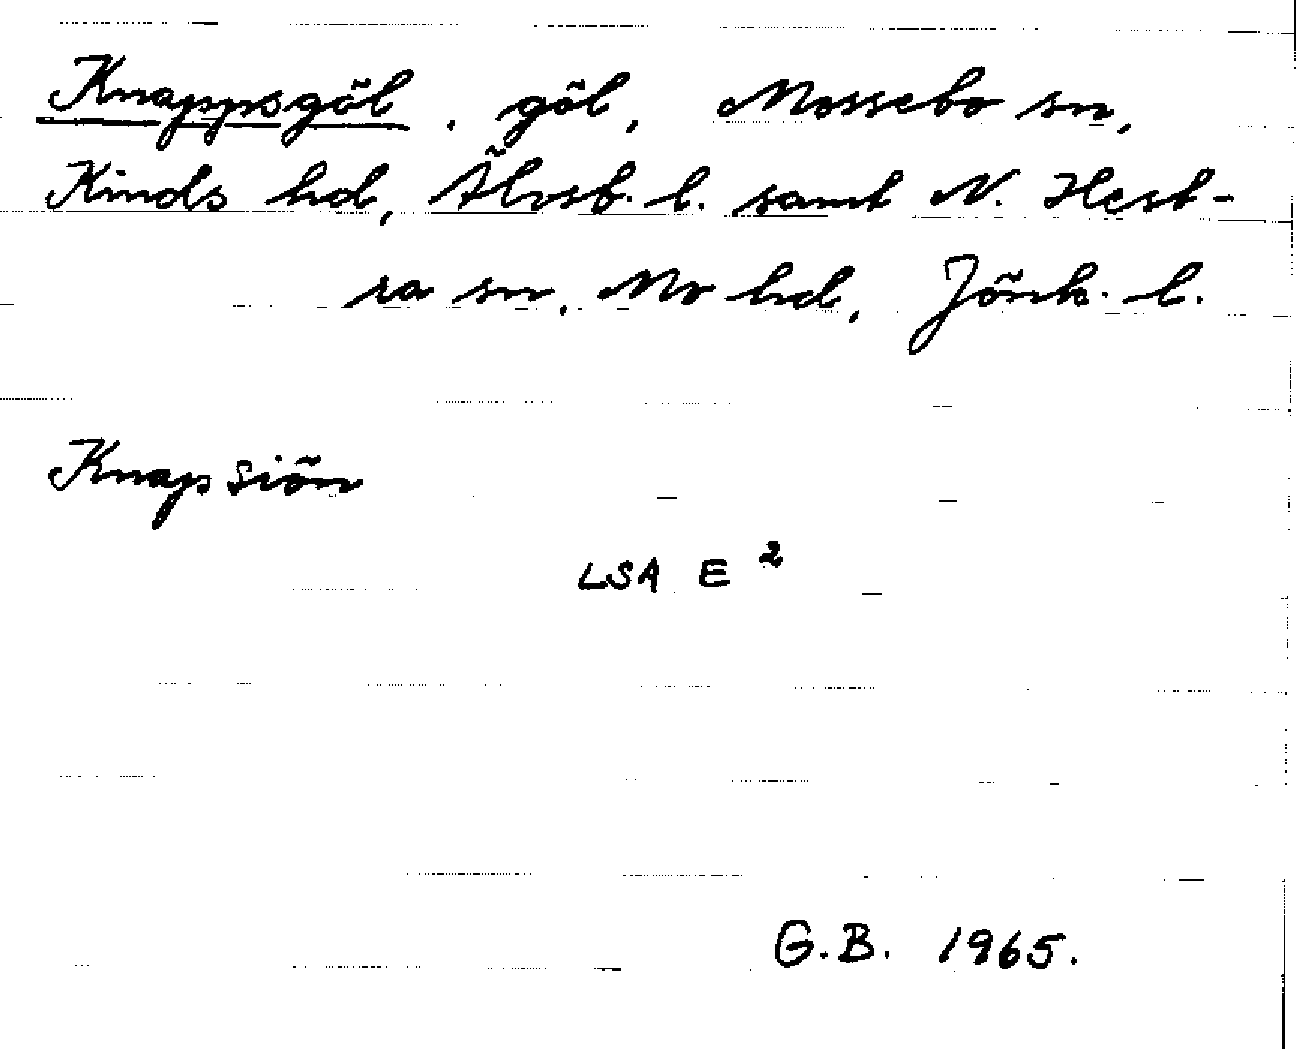 Knappsgöl, göl, Mossebo sn,
Kinds hd, Älvsb. l. samt N. Hest-
ra sn, Mo hd, Jönk. l.
Knap Siön
LSA E 2
G.B. 1965.